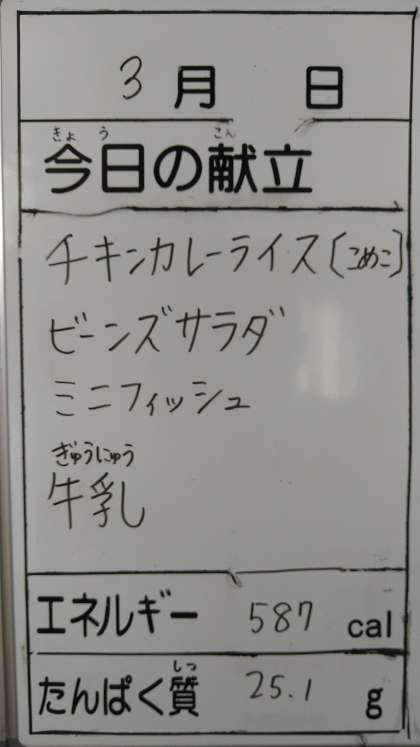 3月 日
きょう こん
今日の献立
チキンカレーライス〔こめこ〕
ビーンズサラダ
ミニフィッシュ
ぎゅうにゅう
牛乳
エネルギー 587 cal
しつ
たんぱく質 25.1 g